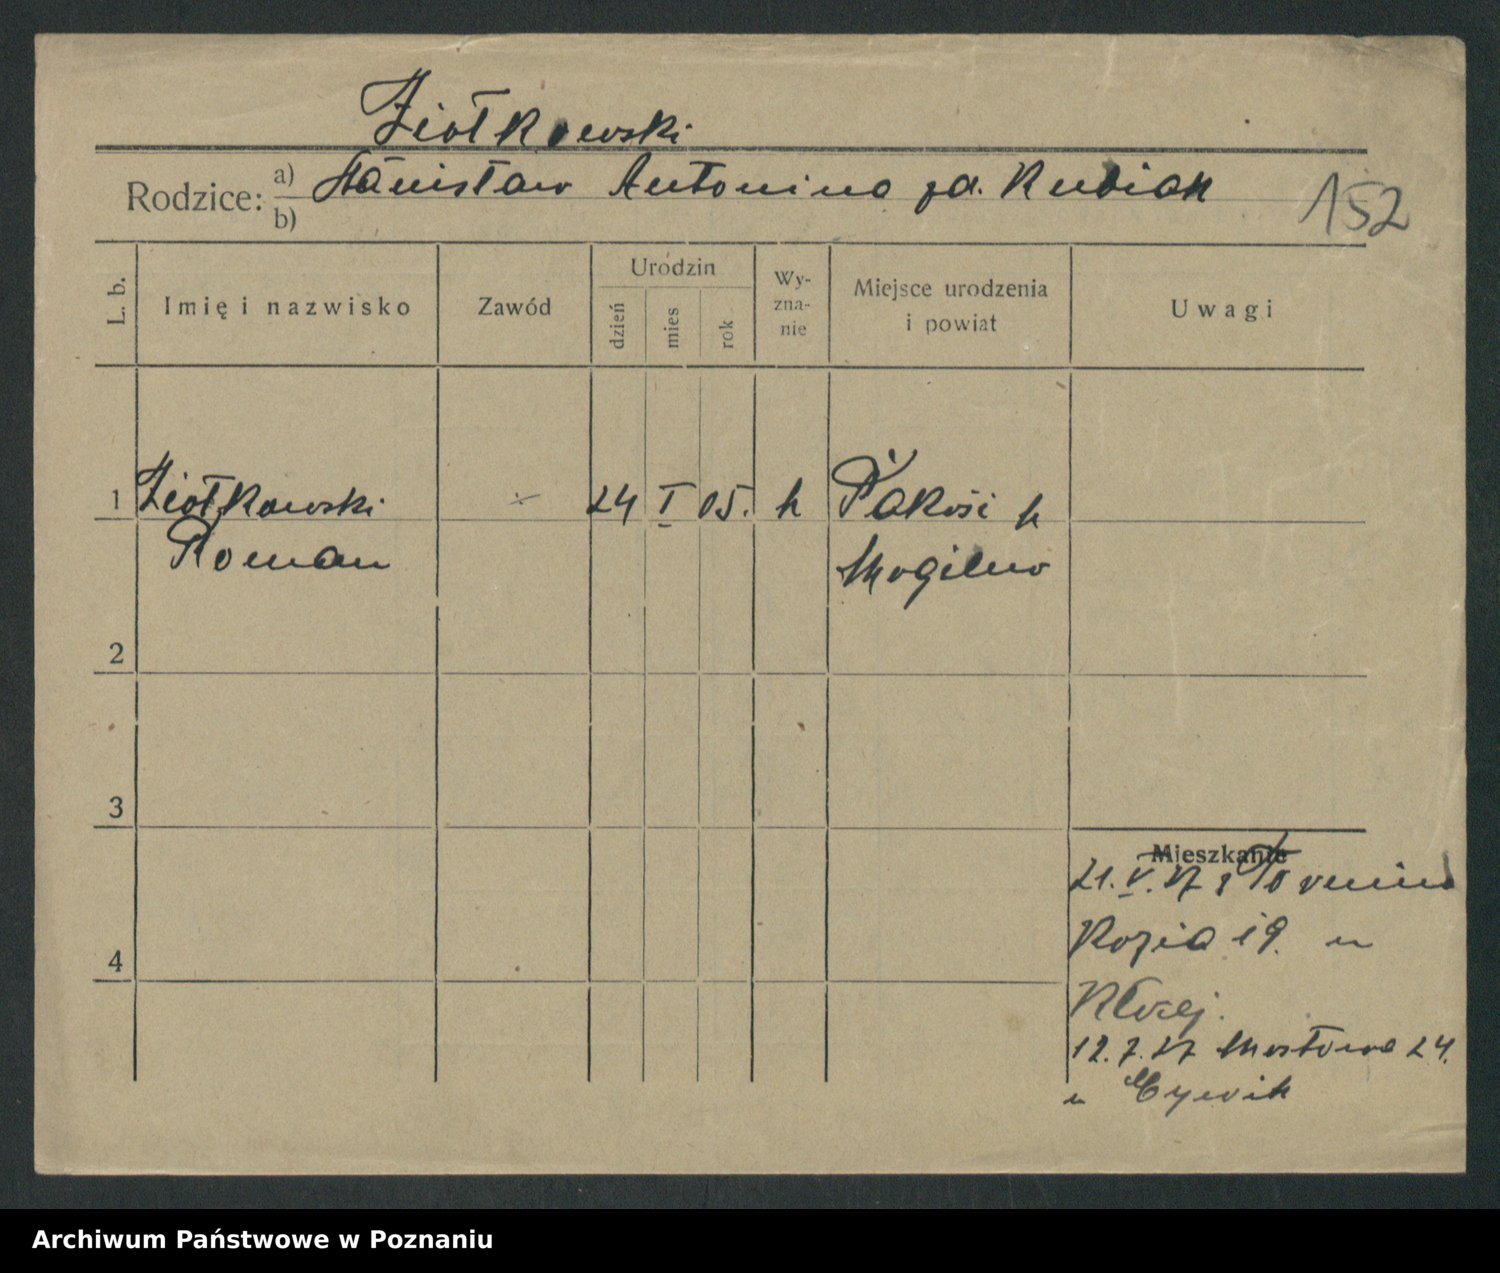 Ziołkowski
Rodzice: a) Stanisław Antonina zd. Kubiak
b)
152
L. b.
Imię i nazwisko
Zawód
Urodzin
dzień
mies
rok
Wy-
zna-
nie
Miejsce urodzenia
i powiat
Uwagi
1 Ziołkowski 24 I 05. k Pakość k
Roman Mogilno
2
3
4
Mieszkanie
21. V. 27 z Torunia
Kozia 19. u
12. 7. 27 Mostowa 24.
u
Archiwum Państwowe w Poznaniu